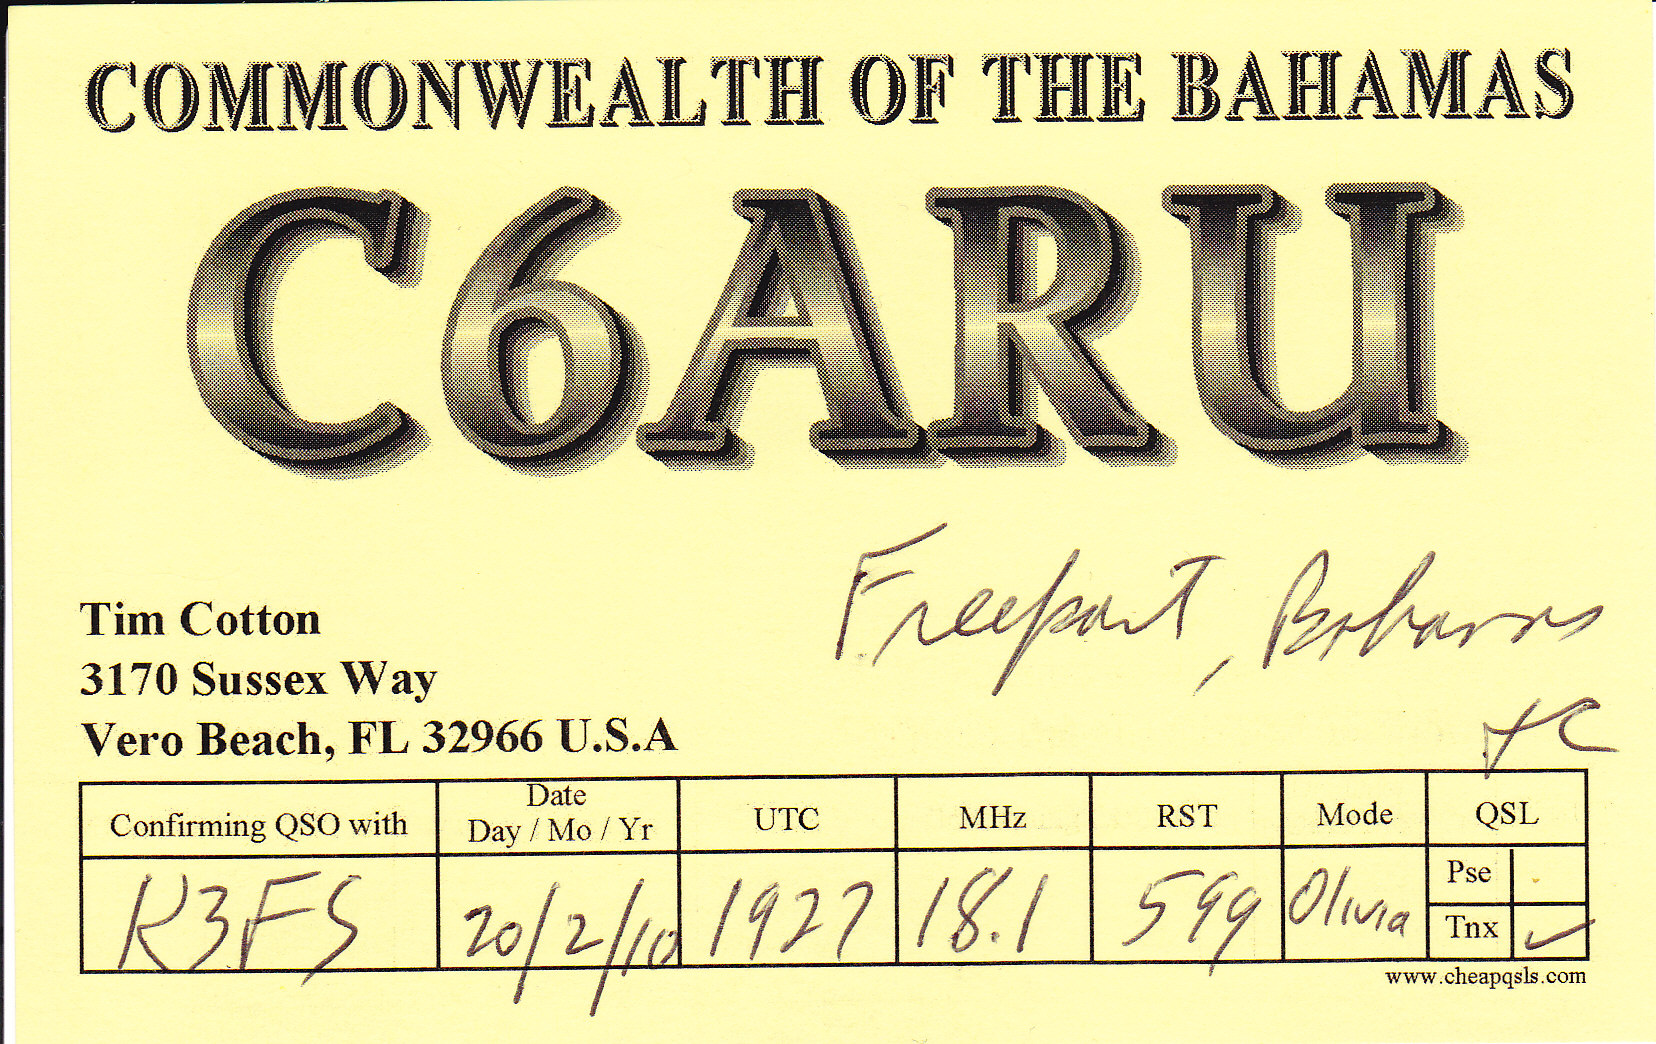 COMMONWEALTH OF THE BAHAMAS
C6ARU
Freeport, Bahamas
Tim Cotton
3170 Sussex Way
Vero Beach, FL 32966 U.S.A
Confirming QSO with
Date
Day / Mo / Yr
UTC
MHz
RST
Mode
QSL
K3FS
20/2/10
1927
18.1
599
Olivia
Pse
Tnx ✓
www.cheapqsls.com